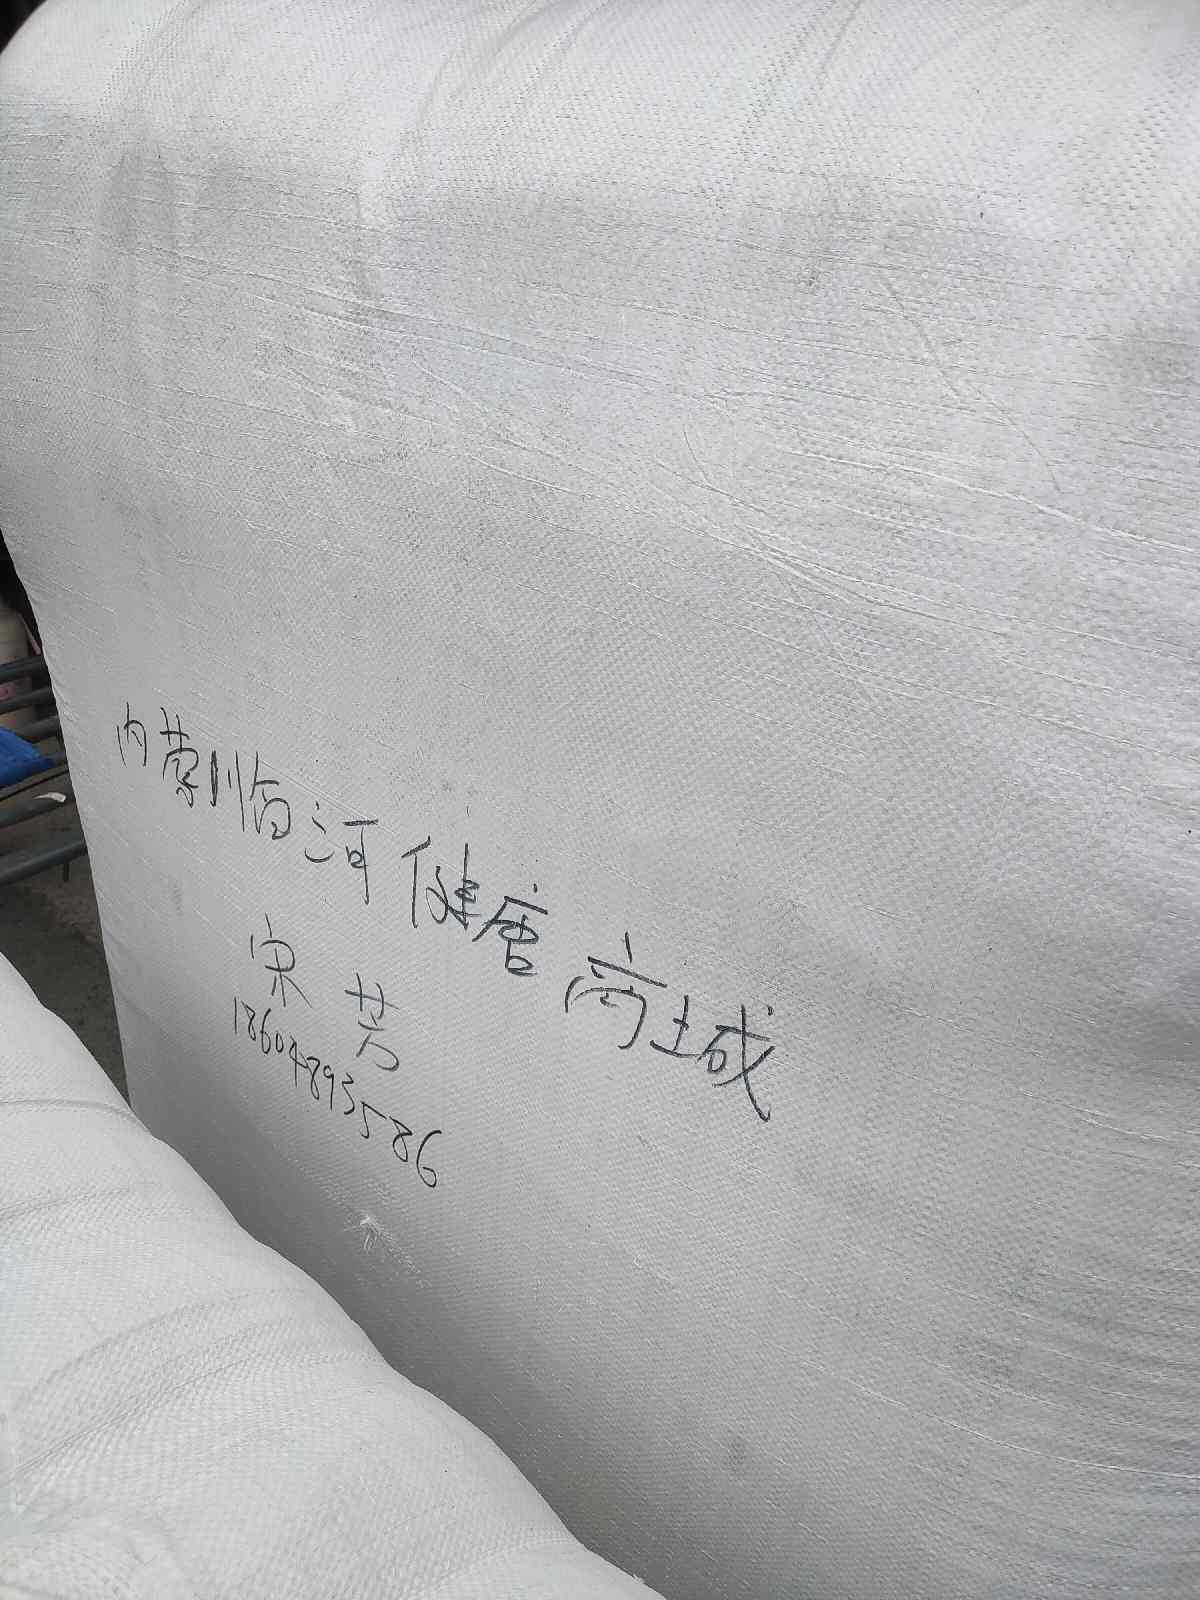 内蒙临河健康商城
宋芳
18604893586